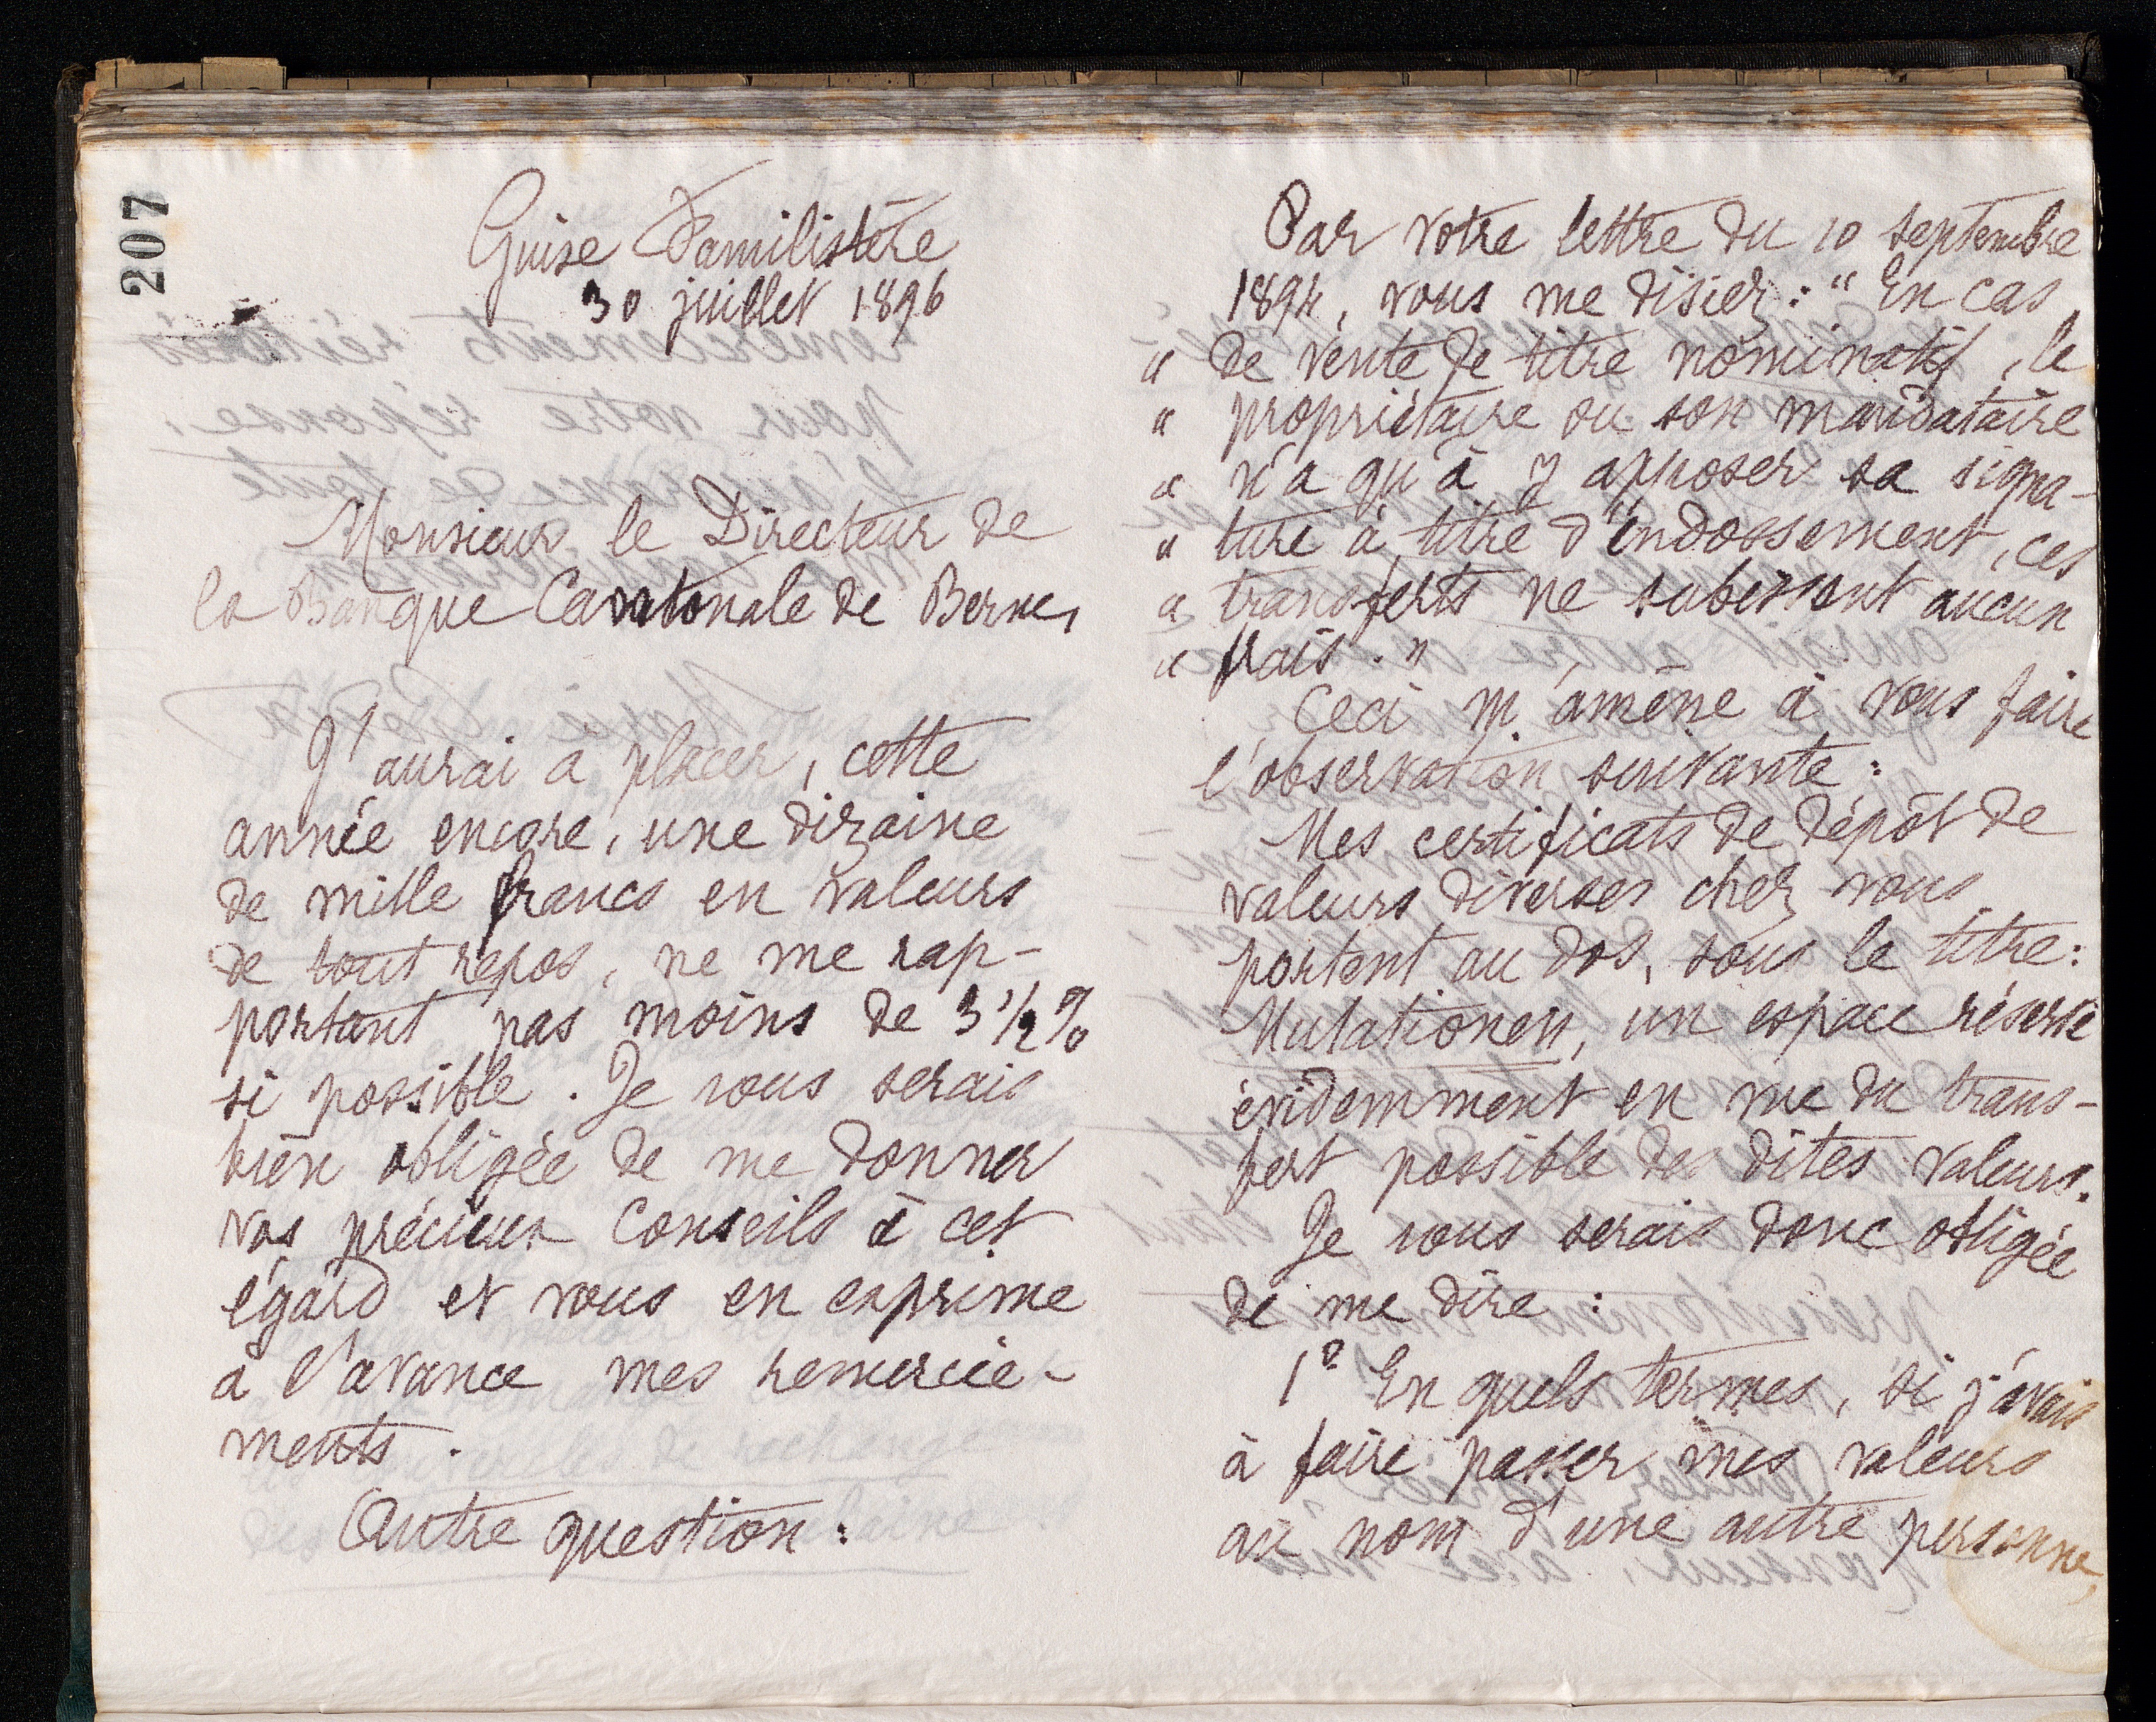 207
Guise Familistère
30 juillet 1896
Monsieur le Directeur de
la Banque Cantonale de Berne,
J'aurai à placer, cette
année encore, une dizaine
de mille francs en valeurs
de tout repos, ne me rap-
portant pas moins de 3 1/2 %
si possible. Je vous serais
bien obligée de me donner
vos précieux conseils à cet
égard et vous en exprime
à l'avance mes remercie-
ments.
Autre question :
Par votre lettre du 10 septembre
1894, vous me disiez : "En cas
" de vente de titre nominatif, le
" propriétaire ou son mandataire
" n'a qu'à y apposer sa signa-
" ture à titre d'endossement, ces
" transferts ne subissent aucun
" frais."
Ceci m'amène à vous faire
l'observation suivante :
Mes certificats de dépôt de
valeurs diverses chez vous
portent au dos, sous le titre :
Mutationen, un espace réservé
évidemment en vue du trans-
fert possible des dites valeurs.
Je vous serais donc obligée
de me dire :
1° En quels termes, si j'avais
à faire passer mes valeurs
au nom d'une autre personne,